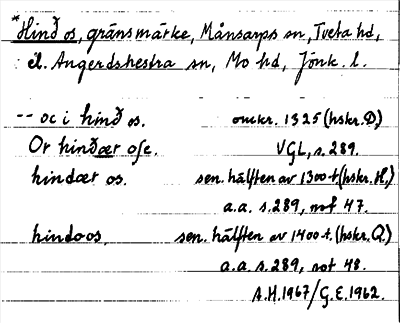 *Hinð os, gränsmärke, Månsarps sn, Tveta hd,
el. Angerdshestra sn, Mo hd, Jönk. l.
-- oc i hinð os. omkr. 1325 (hskr. D,)
Or hinðær ose. VGL, s. 289.
hindær os. sen. hälften av 1300-t. (hskr. H,)
a.a. s. 289, not 47.
hindoos. sen. hälften av 1400-t. (hskr. Q.)
a.a. s. 289, not 48.
A.H. 1967/G.E. 1962.